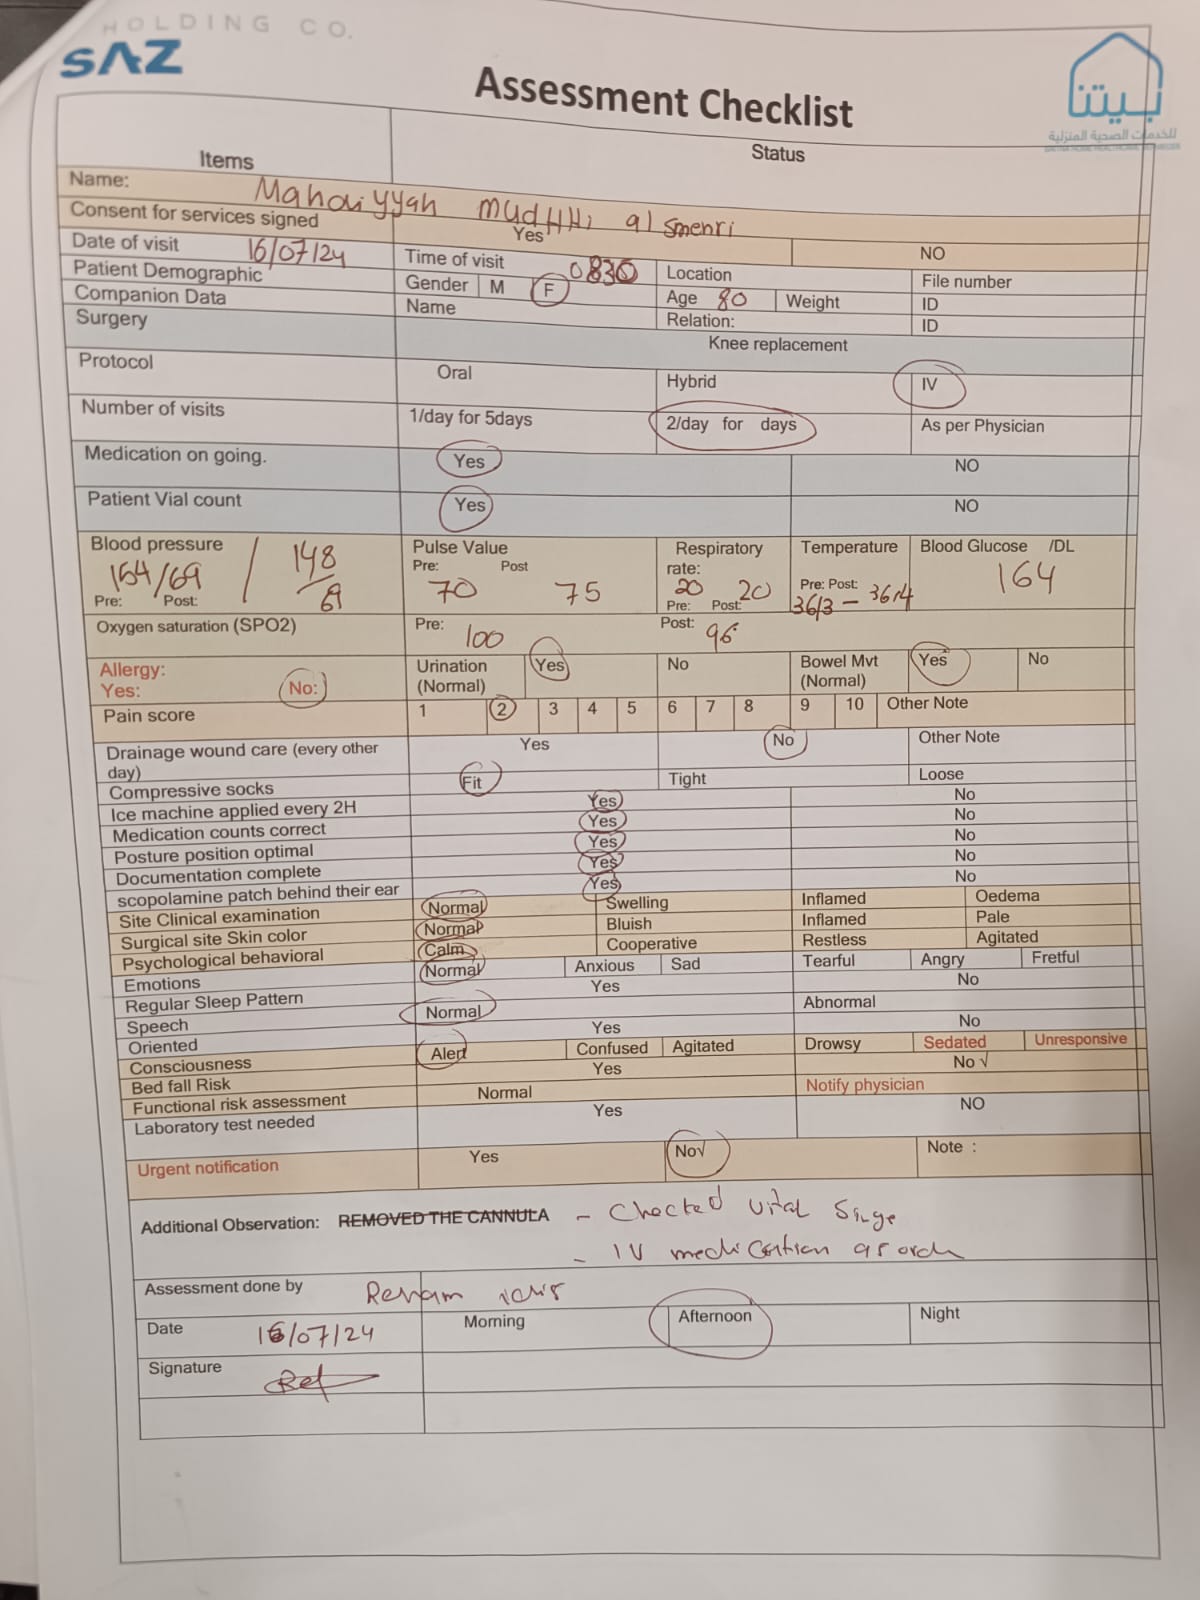 HOLDING CO.
SAZ
Assessment Checklist
بيتنا
للخدمات الصحية المنزلية
Items Status
Name: Mahdiyyah MUdHHi alsmenri
Consent for services signed Yes NO
Date of visit 16/07/24 Time of visit 0830 Location File number
Patient Demographic Gender M F Age 80 Weight ID
Companion Data Name Relation: ID
Surgery Knee replacement
Protocol Oral Hybrid IV
Number of visits 1/day for 5days 2/day for days As per Physician
Medication on going. Yes NO
Patient Vial count Yes NO
Blood pressure Pulse Value Respiratory rate: Temperature Blood Glucose /DL
154/69 / 148/69 Pre: 70 Post 75 20 20 Pre: Post: 36/3 - 36.4 164
Pre: Post: Pre: Post:
Oxygen saturation (SPO2) Pre: 100 Post: 96
Allergy: Urination (Normal) Yes No Bowel Mvt (Normal) Yes No
Yes: No:
Pain score 1 2 3 4 5 6 7 8 9 10 Other Note
Drainage wound care (every other day) Yes No Other Note
Compressive socks Fit Tight Loose
Ice machine applied every 2H Yes No
Medication counts correct Yes No
Posture position optimal Yes No
Documentation complete Yes No
scopolamine patch behind their ear Yes No
Site Clinical examination Normal Swelling Inflamed Oedema
Surgical site Skin color Normal Bluish Inflamed Pale
Psychological behavioral Calm Cooperative Restless Agitated
Emotions Normal Anxious Sad Tearful Angry Fretful
Regular Sleep Pattern Yes No
Speech Normal Abnormal
Oriented Yes No
Consciousness Alert Confused Agitated Drowsy Sedated Unresponsive
Bed fall Risk Yes No √
Functional risk assessment Normal Notify physician
Laboratory test needed Yes NO
Urgent notification Yes No√ Note :
Additional Observation: REMOVED THE CANNULA - Checked vital Singe
- IV medication as orch
Assessment done by Renam
Date 16/07/24 Morning Afternoon Night
Signature